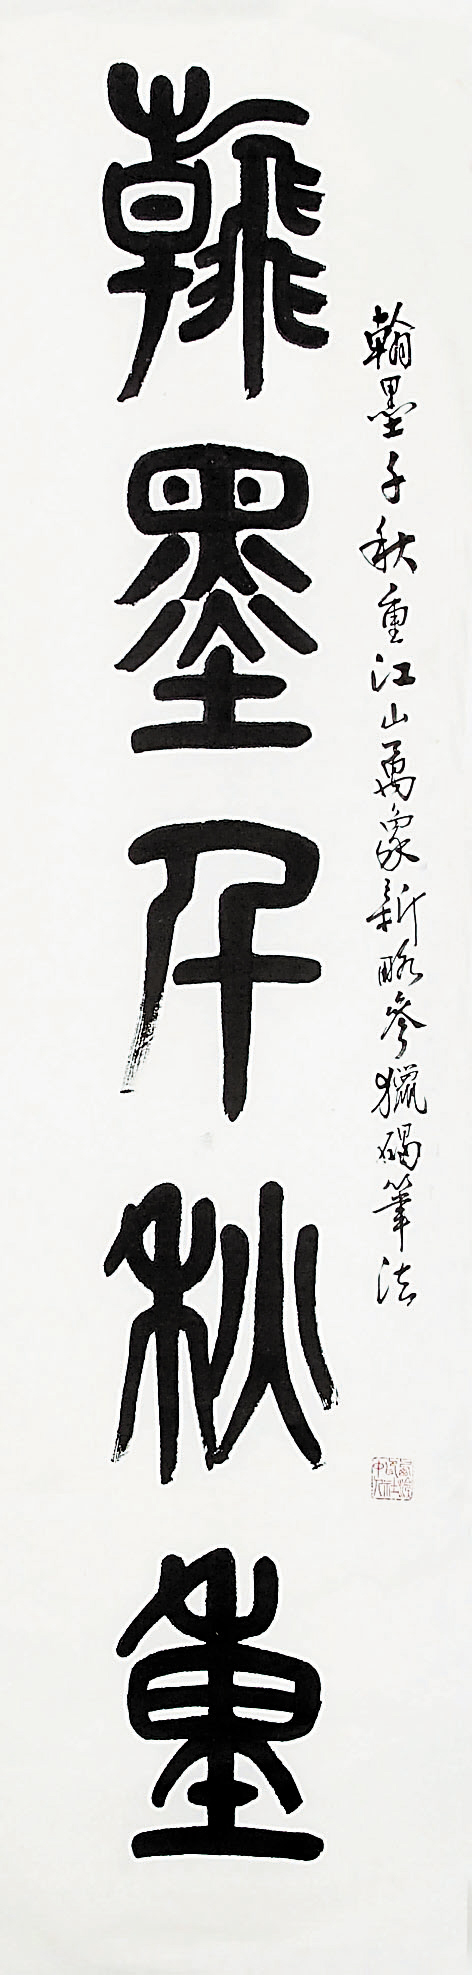 翰墨千秋重江山萬象新略參獵碣筆法
翰墨千秋重